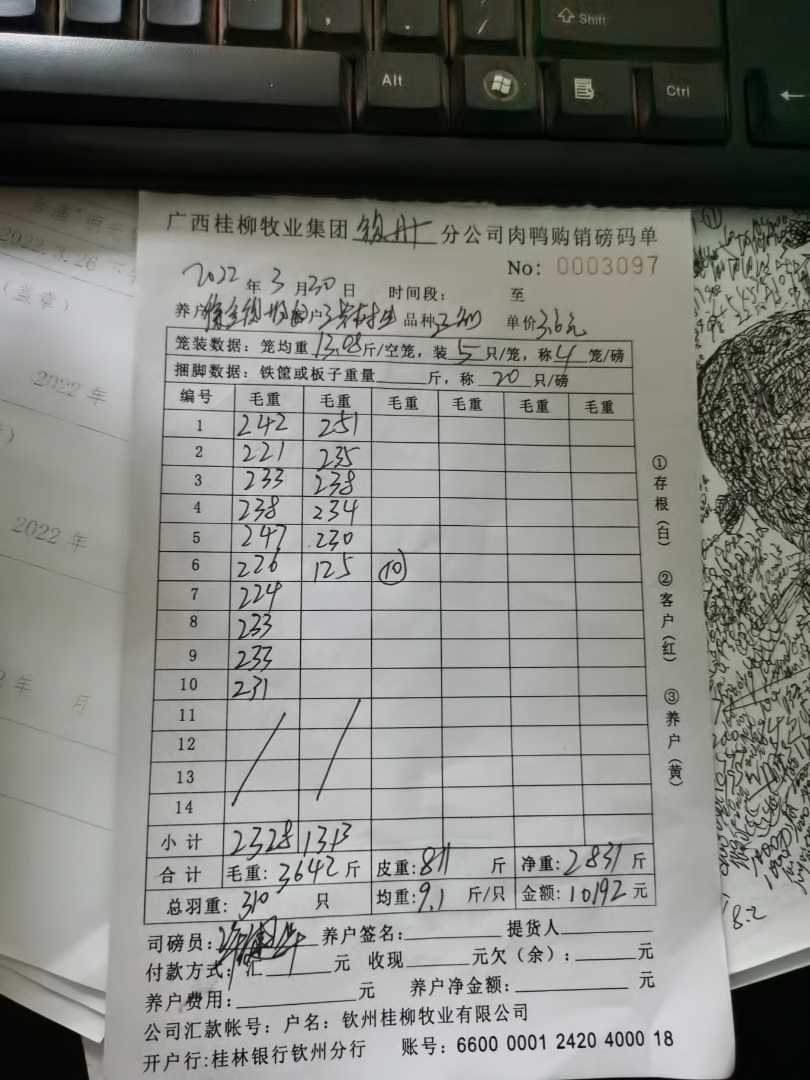 Shift
Alt
Ctrl
广西桂柳牧业集团 钦州 分公司肉鸭购销磅码单
No: 0003097
2022 年 3 月 30 日 时间段: 至
养户 户 品种 单价 3.6元
笼装数据: 笼均重 13.08 斤/空笼, 装 5 只/笼, 称 4 笼/磅
捆脚数据: 铁筐或板子重量 斤, 称 20 只/磅
编号 毛重 毛重 毛重 毛重 毛重 毛重
1 242 251
2 221 235
3 233 238
4 238 234
5 247 230
6 226 125 10
7 224
8 233
9 233
10 231
11
12
13
14
小计 2328 1313
合计 毛重: 3642 斤 皮重: 811 斤 净重: 2831 斤
总羽重: 310 只 均重: 9.1 斤/只 金额: 10192 元
司磅员: 养户签名: 提货人
付款方式: 汇 元 收现 元欠(余): 元
养户费用: 元 养户净金额: 元
公司汇款帐号: 户名: 钦州桂柳牧业有限公司
开户行:桂林银行钦州分行 账号: 6600 0001 2420 4000 18
①存根(白) ②客户(红) ③养户(黄)
2022.3.26
(盖章)
2022 年
2022 年
年 月
18.2